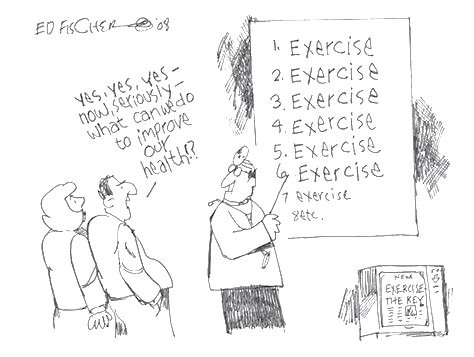 ED FISCHER '08
yes, yes, yes—
now, seriously—
what can we do
to improve
our
health!?
1. Exercise
2. Exercise
3. Exercise
4. Exercise
5. Exercise
6. Exercise
7 exercise
8 etc.
NEW
EXERCISE
THE KEY